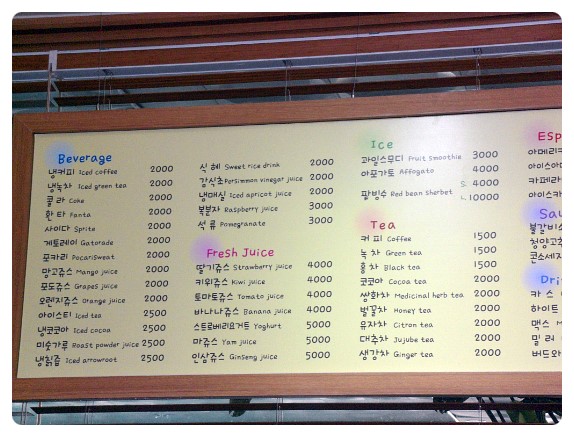 Beverage
냉커피 Iced coffee 2000
냉녹차 Iced green tea 2000
콜라 Coke 2000
환타 Fanta 2000
사이다 Sprite 2000
게토레이 Gatorade 2000
포카리 PocariSweat 2000
망고쥬스 Mango juice 2000
포도쥬스 Grapes juice 2000
오렌지쥬스 Orange juice 2000
아이스티 Iced tea 2500
냉코코아 Iced cocoa 2500
미숫가루 Roast powder juice 2500
냉칡즙 Iced arrowroot 2500
식혜 Sweet rice drink 2000
감식초 Persimmon vinegar juice 2000
냉매실 Iced apricot juice 2000
복분자 Raspberry juice 3000
석류 Pomegranate 3000
Fresh Juice
딸기쥬스 Strawberry juice 4000
키위쥬스 Kiwi juice 4000
토마토쥬스 Tomato juice 4000
바나나쥬스 Banana juice 4000
스트로베리요거트 Yoghurt 5000
마쥬스 Yam juice 5000
인삼쥬스 GinSeng juice 5000
Ice
과일스무디 Fruit smoothie 3000
아포가토 Affogato 4000
S: 4000
팥빙수 Red bean Sherbet L: 10000
Tea
커피 Coffee 1500
녹차 Green tea 1500
홍차 Black tea 1500
코코아 Cocoa tea 2000
쌍화차 Medicinal herb tea 2000
벌꿀차 Honey tea 2000
유자차 Citron tea 2000
대추차 Jujube tea 2000
생강차 Ginger tea 2000
ESp
아메리카
아이스아메
카페라
아이스카
Sau
불갈비소
청양고추
콘소세지
Dri
카스
하이트
맥스
밀러
버드와